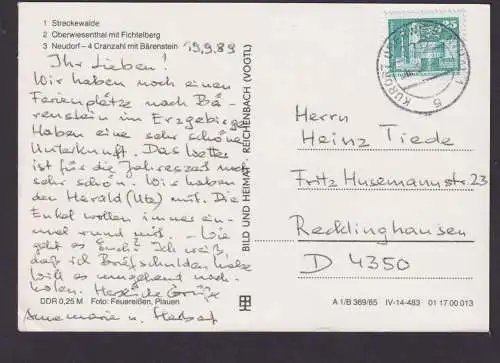 1 Streckewalde
2 Oberwiesenthal mit Fichtelberg
3 Neudorf – 4 Cranzahl mit Bärenstein
19.9.89
Ihr Lieben!
Wir haben noch einen
Ferienplätze nach Bä-
renstein im Erzgebirge
Haben eine sehr schöne
Unterkunft. Das Wetter
ist für die Jahreszeit noch
sehr schön. Wir haben
den Herald (Ute) mit. Die
Enkel wollen immer ein-
mal rund mit. – Wie
geht es Euch? Ich weiß,
daß ich Briefschulden habe
Will es umgehend nach-
holen. Herzliche Grüße
Annemarie u. Herbert
DDR 0,25 M Foto: Feuereißen, Plauen
BILD UND HEIMAT REICHENBACH (VOGTL)
25
KURORT
5
Herrn
Heinz Tiede
Fritz Husemannstr. 23
Recklinghausen
D 4350
A 1/B 369/85 IV-14-483 01 17 00 013